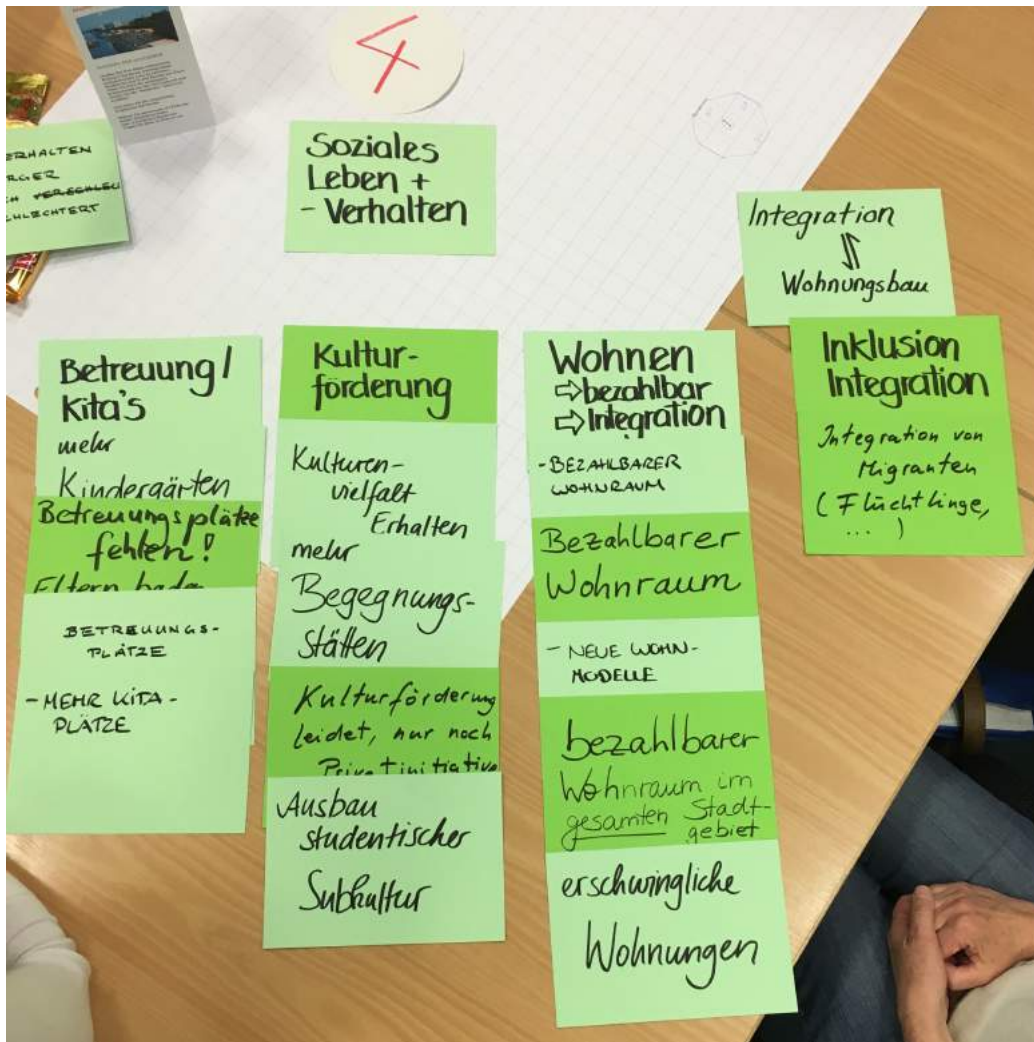 4
Soziales
Leben +
- Verhalten
ERHALTEN
RGER
CH
HLECHTERT
Integration
⇌
Wohnungsbau
Betreuung /
Kita's
mehr
Kindergärten
Betreuungsplätze
fehlen!
Eltern
BETREUUNGS-
PLÄTZE
- MEHR KITA-
PLÄTZE
Kultur-
förderung
Kulturen-
vielfalt
Erhalten
mehr
Begegnungs-
Stätten
Kulturförderung
leidet, nur noch
Privatinitiative
Ausbau
studentischer
Subkultur
Wohnen
⇨ bezahlbar
⇨ Integration
- BEZAHLBARER
WOHNRAUM
Bezahlbarer
Wohnraum
- NEUE WOHN-
MODELLE
bezahlbarer
Wohnraum im
gesamten Stadt-
gebiet
erschwingliche
Wohnungen
Inklusion
Integration
Integration von
Migranten
(Flüchtlinge,
... )